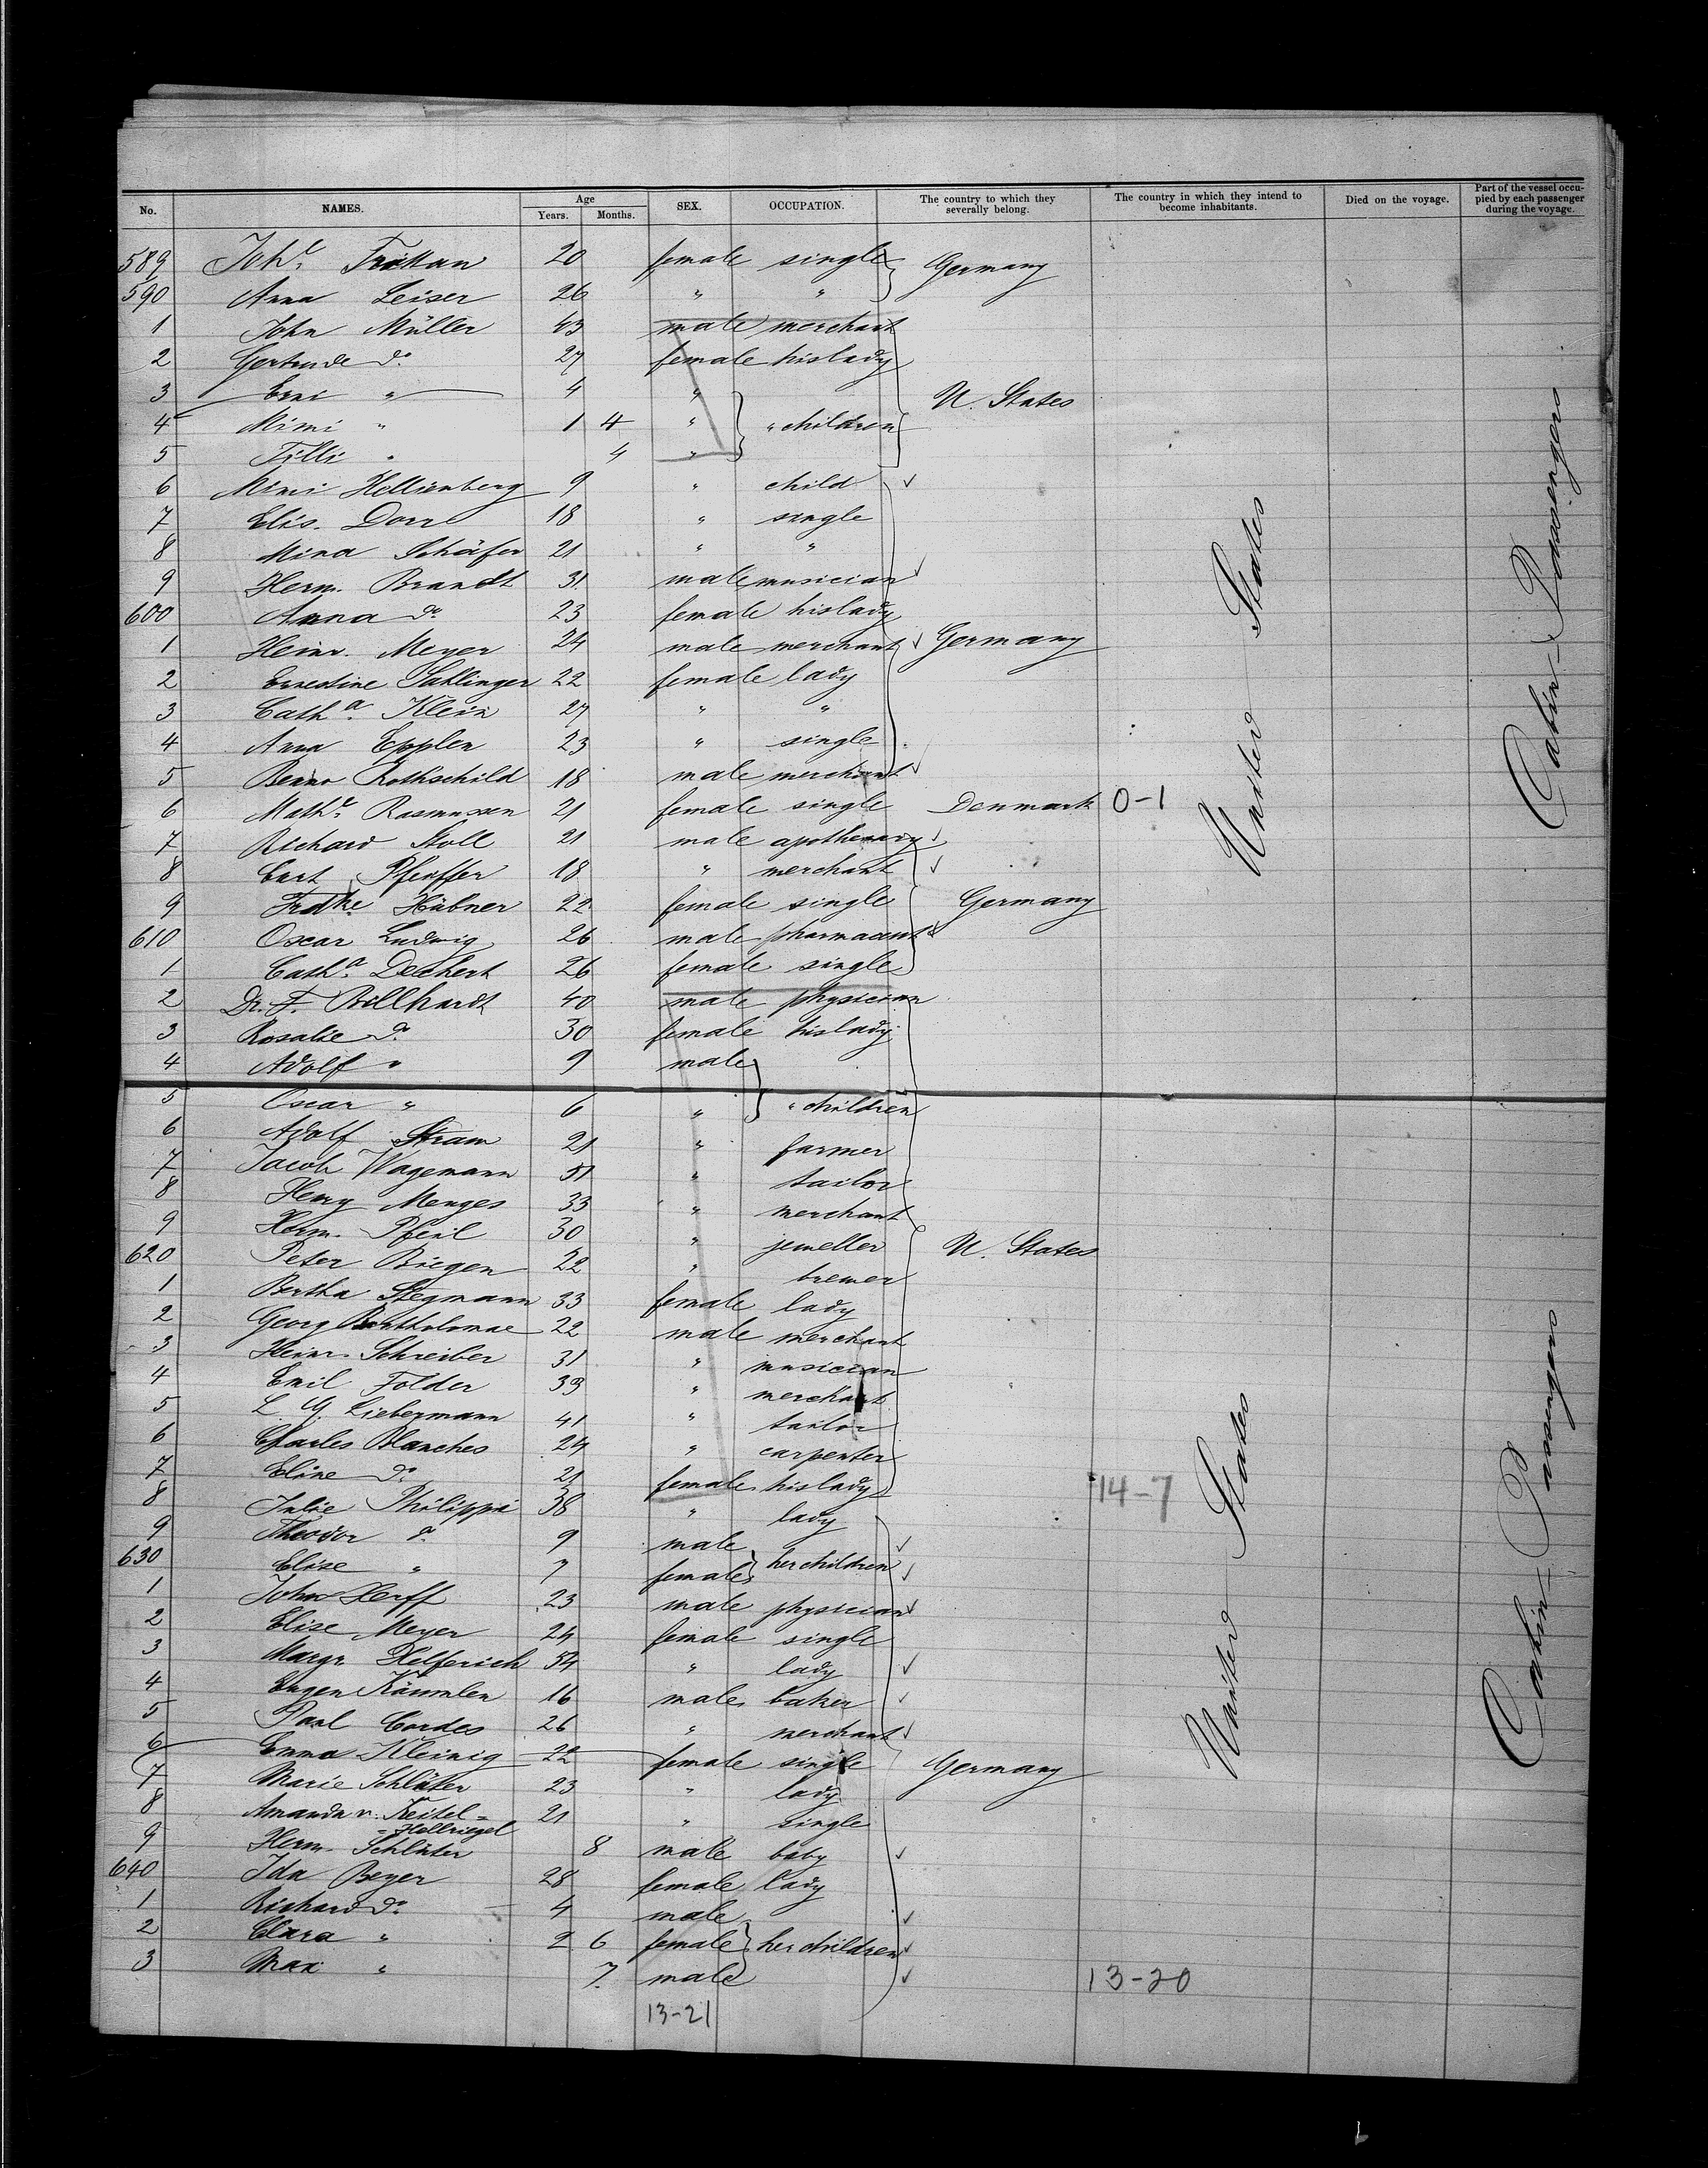 No. NAMES. Age Years. Months. SEX. OCCUPATION. The country to which they severally belong. The country in which they intend to become inhabitants. Died on the voyage. Part of the vessel occupied by each passenger during the voyage.
589 Joh. 20 female single Germany
590 Anna Leiser 26 " "
1 John Müller 43 male merchant
2 Gertrude do 27 female his lady
3 Erni " 4 " U. States
4 Mimi " 1 4 " " children
5 Tilli " 4 "
6 Mimi Hellienberg 9 " child
7 Elis. Dorr 18 " single
8 Mina Schäfer 21 " "
9 Herm. Brandt 31 male musician
600 Anna do 23 female his lady
1 Heinr. Meyer 24 male merchant Germany
2 Ernestine Sahlinger 22 female lady
3 Catha Klein 27 " "
4 Anna Epplen 23 " single
5 Benno Rothschild 18 male merchant
6 Mathe Rasmussen 21 female single Denmark 0-1
7 Richard Stoll 21 male apothecary
8 Curt Pfeiffer 18 " merchant
9 Hübner 22 female single Germany
610 Oscar Ludwig 26 male pharmaceut
1 Catha Dechert 26 female single
2 Dr. F. Billhardt 40 male physician
3 Rosalie do 30 female his lady
4 Adolf " 9 male
5 Oscar " 6 " " children
6 Adolf Stram 21 " farmer
7 Jacob Wagemann 51 " tailor
8 Henry Menges 33 " merchant
9 Herm. Pfeil 30 " jeweller U. States
620 Peter Biegen 22 " brewer
1 Bertha Stegmann 33 female lady
2 Georg Bartholomae 22 male merchant
3 Heinr. Schreiber 31 " musician
4 Emil Folder 33 " merchant
5 L. Y. Liebermann 41 " tailor
6 Charles Blanches 24 " carpenter
7 Eline do 21 female his lady 14-7
8 Julie Philippi 38 " lady
9 Theodor do 9 male
630 Elise " 7 female her children
1 John Herff 23 male physician
2 Elise Meyer 24 female single
3 Margr Helferich 54 " lady
4 Eugen Kämmlen 16 male baker
5 Paul Cordes 26 " merchant
6 Emma Kleinig 22 female single Germany
7 Marie Schlüter 23 " lady
8 Amanda v. Keitel= 21 " single
=Hellriegel
9 Herm. Schlüter 8 male baby
640 Ida Beyer 28 female lady
1 Richard do 4 male
2 Clara " 2 6 female her children
3 Max " 7 male 13-20
13-21
United States
United States
Cabin Passengers
Cabin Passengers